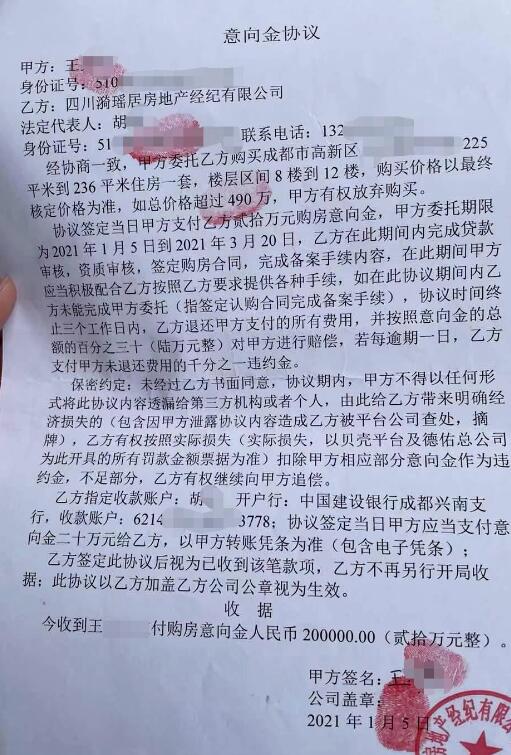 意向金协议
甲方：王
身份证号：510
乙方：四川漪瑶居房地产经纪有限公司
法定代表人：胡
身份证号：51 联系电话：132
经协商一致，甲方委托乙方购买成都市高新区 225
平米到 236 平米住房一套，楼层区间 8 楼到 12 楼，购买价格以最终
核定价格为准，如总价格超过 490 万，甲方有权放弃购买。
协议签定当日甲方支付乙方贰拾万元购房意向金，甲方委托期限
为 2021 年 1 月 5 日到 2021 年 3 月 20 日，乙方在此期间内完成贷款
审核，资质审核，签定购房合同，完成备案手续内容，在此期间甲方
应当积极配合乙方按照乙方要求提供各种手续，如在此协议期间内乙
方未能完成甲方委托（指签定认购合同完成备案手续），协议时间终
止三个工作日内，乙方退还甲方支付的所有费用，并按照意向金的总
额的百分之三十（陆万元整）对甲方进行赔偿，若每逾期一日，乙方
支付甲方未退还费用的千分之一违约金。
保密约定：未经过乙方书面同意，协议期内，甲方不得以任何形
式将此协议内容透漏给第三方机构或者个人，由此给乙方带来明确经
济损失的（包含因甲方泄露协议内容造成乙方被平台公司查处，摘
牌），乙方有权按照实际损失（实际损失，以贝壳平台及德佑总公司
为此开具的所有罚款金额票据为准）扣除甲方相应部分意向金作为违
约金，不足部分，乙方有权继续向甲方追偿。
乙方指定收款账户：胡 开户行：中国建设银行成都兴南支
行，收款账户：6214 3778；协议签定当日甲方应当支付意
向金二十万元给乙方，以甲方转账凭条为准（包含电子凭条）；
乙方签定此协议后视为已收到该笔款项，乙方不再另行开局收
据；此协议以乙方加盖乙方公司公章视为生效。
收 据
今收到王 付购房意向金人民币 200000.00（贰拾万元整）。
甲方签名：王
公司盖章：
2021 年 1 月 5 日
地产经纪有限